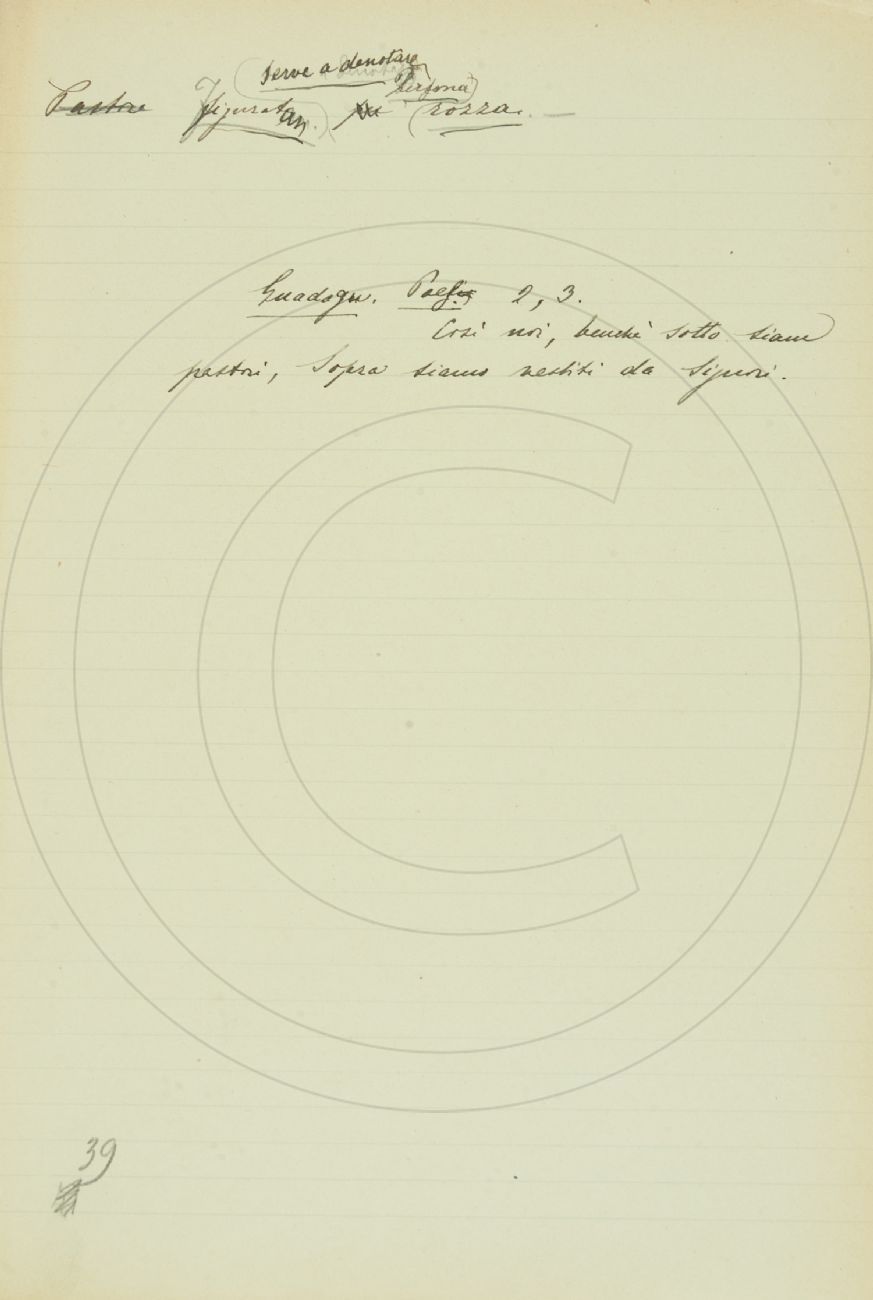 serve a denotare
Pastore figuratam. di Persona rozza. —
Guadagn. Poes. 2, 3.
Così noi, benchè sotto siam
pastori, Sopra siamo vestiti da Signori.
39